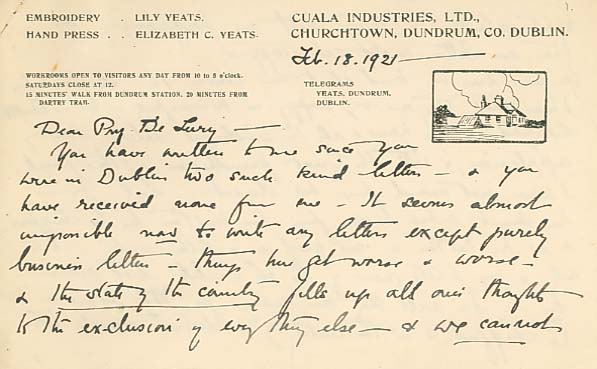 1.
EMBROIDERY . LILY YEATS.
HAND PRESS . . ELIZABETH C. YEATS.
CUALA INDUSTRIES, LTD.,
CHURCHTOWN, DUNDRUM, CO. DUBLIN.
Feb. 18. 1921
WORKROOMS OPEN TO VISITORS ANY DAY FROM 10 to 5 o'clock.
SATURDAYS CLOSE AT 12.
15 MINUTES' WALK FROM DUNDRUM STATION. 20 MINUTES FROM
DARTRY TRAM.
TELEGRAMS
YEATS, DUNDRUM,
DUBLIN.
Dear De Lury —
You have written to me since you
were in Dublin two such kind letters — & you
have received none from me — It seems almost
impossible now to write any letters except purely
business letters — Things here get worse & worse —
& the state of the country fills up all our thoughts
to the exclusion of everything else — & we cannot